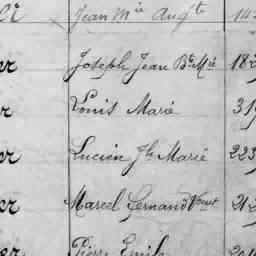 er Jean Mie Augte 14
er Joseph Jean Bte Mie 182
er Louis Marie 31
er Lucien Jh Marie 223
er Marcel Fernand Vcent 212
er Pierre Emile